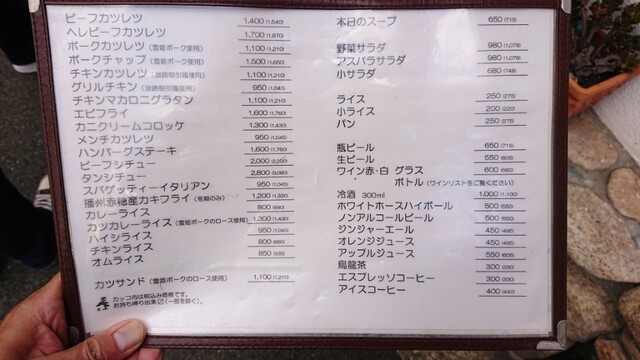 ビーフカツレツ 1,400 (1,540)
ヘレビーフカツレツ 1,700 (1,870)
ポークカツレツ (雪姫ポーク使用) 1,100 (1,210)
ポークチャップ (雪姫ポーク使用) 1,500 (1,650)
チキンカツレツ (淡路朝引鶏使用) 1,100 (1,210)
グリルチキン (淡路朝引鶏使用) 950 (1,045)
チキンマカロニグラタン 1,100 (1,210)
エビフライ 1,600 (1,760)
カニクリームコロッケ 1,300 (1,430)
メンチカツレツ 950 (1,045)
ハンバーグステーキ 1,600 (1,760)
ビーフシチュー 2,000 (2,200)
タンシチュー 2,800 (3,080)
スパゲッティーイタリアン 950 (1,045)
播州赤穂産カキフライ (冬期のみ) 1,200 (1,320)
カレーライス 800 (880)
カツカレーライス (雪姫ポークのロース使用) 1,300 (1,430)
ハイシライス 950 (1,045)
チキンライス 800 (880)
オムライス 850 (935)
カツサンド (雪姫ポークのロース使用) 1,100 (1,210)
カッコ内は税込み価格です。
お持ち帰り出来〼(一部を除く)。
本日のスープ 650 (715)
野菜サラダ 980 (1,078)
アスパラサラダ 980 (1,078)
小サラダ 680 (748)
ライス 250 (275)
小ライス 200 (220)
パン 250 (275)
瓶ビール 650 (715)
生ビール 550 (605)
ワイン赤・白 グラス 600 (660)
ボトル (ワインリストをご覧ください)
冷酒 300ml 1,000 (1,100)
ホワイトホースハイボール 500 (550)
ノンアルコールビール 500 (550)
ジンジャーエール 450 (495)
オレンジジュース 450 (495)
アップルジュース 550 (605)
烏龍茶 300 (330)
エスプレッソコーヒー 300 (330)
アイスコーヒー 400 (440)